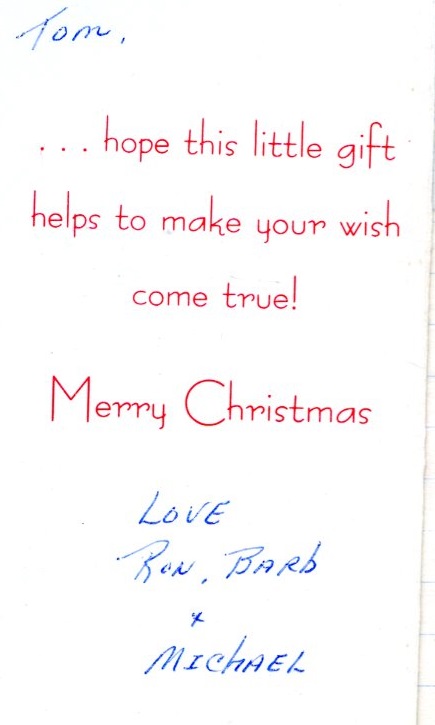 Tom,
... hope this little gift
helps to make your wish
come true!
Merry Christmas
LOVE
RON, BARb
+
MIChAEL